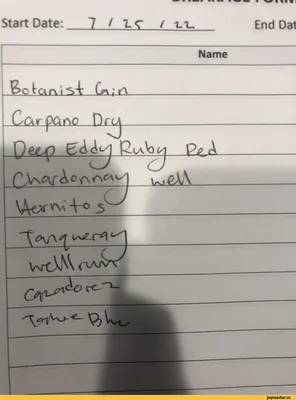 Start Date: 7 / 25 / 22 End Dat
Name
Botanist Gin
Carpano Dry
Deep Eddy Ruby Red
Chardonnay well
Hornitos
Tanqueray
well rum
Cazadorez
joyreactor.cc